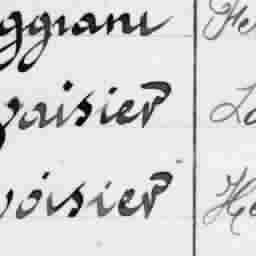 ggiani Fe
gaisier La
voisier He